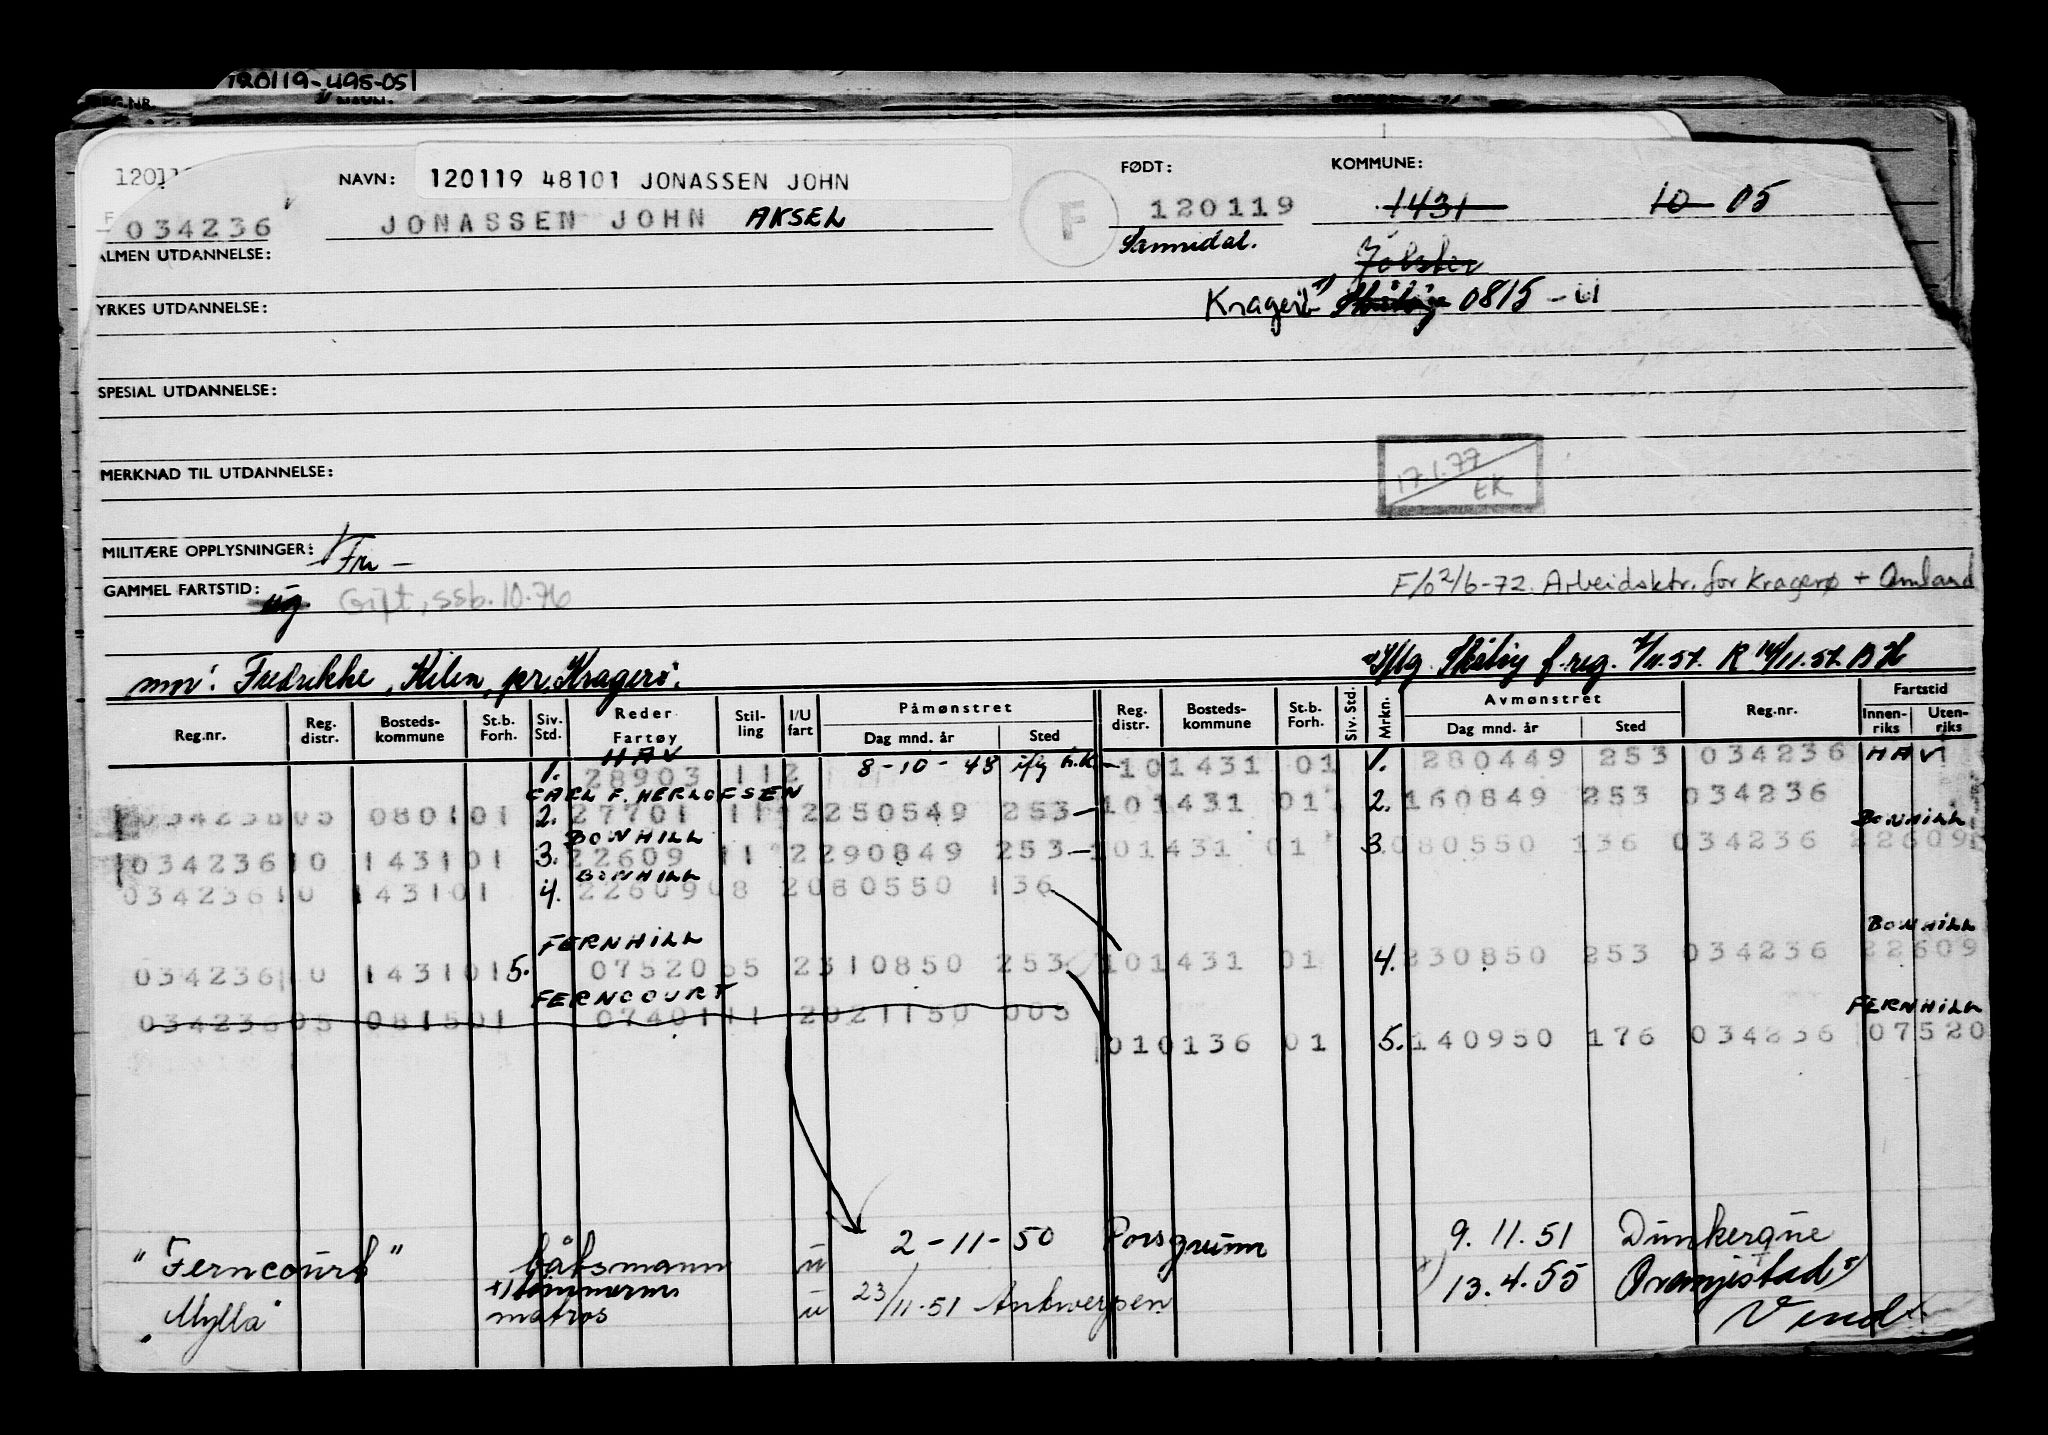 120119-495-051
REG.NR. NAVN:
NAVN: 120119 48101 JONASSEN JOHN FØDT: KOMMUNE:
034236 JONASSEN JOHN AKSEL F 120119 1431 10 05
ALMEN UTDANNELSE: Sannidal. Jølster
YRKES UTDANNELSE: Kragerø 1) Skåtøy 0815 -
SPESIAL UTDANNELSE:
MERKNAD TIL UTDANNELSE: 17.1.77 EK
MILITÆRE OPPLYSNINGER:
GAMMEL FARTSTID: ug. Gift, ssb. 10.76 F/6 2/6-72. Arbeidsktr. for Kragerø + Omland
mor: Fredrikke, Kilen, pr. Kragerø. Skåtøy f.reg. 7/11.57. R 14/11.57. BH
Reg.nr. Reg. distr. Bosteds-kommune St.b. Forh. Siv. Std. Reder Fartøy Stil-ling I/U fart Påmønstret Dag mnd. år Sted Reg. distr. Bosteds-kommune St.b. Forh. Siv. Std. Mrkn. Avmønstret Dag mnd. år Sted Reg.nr. Fartstid Innen-riks Uten-riks
HAV
1. 28903 11 2 8-10-48 101431 01 1. 280449 253 034236 HAV
CARL F. HERLOFSEN
034236 05 0801 01 2. 27701 11 2 250549 253 101431 01 2. 160849 253 034236
BONHILL BONHILL
034236 10 1431 01 3. 22609 11 2 290849 253 101431 01 3. 080550 136 034236 22609
BONHILL
034236 10 1431 01 4. 22609 08 2 080550 136
FERNHILL BONHILL
034236 10 1431 01 5. 07520 65 2 310850 253 101431 01 4. 230850 253 034236 22609
FERNCOURT FERNHILL
034236 05 0815 01 07401 11 2 021150 005
010136 01 5. 140950 176 034236 07520
"Ferncourt" båtsmann u 2-11-50 Porsgrunn 9.11.51 Dunkerque
x) tømmerm
"Mylla" matros u 23/11.51 Antwerpen x) 13.4.55 Oranjestad
Vend